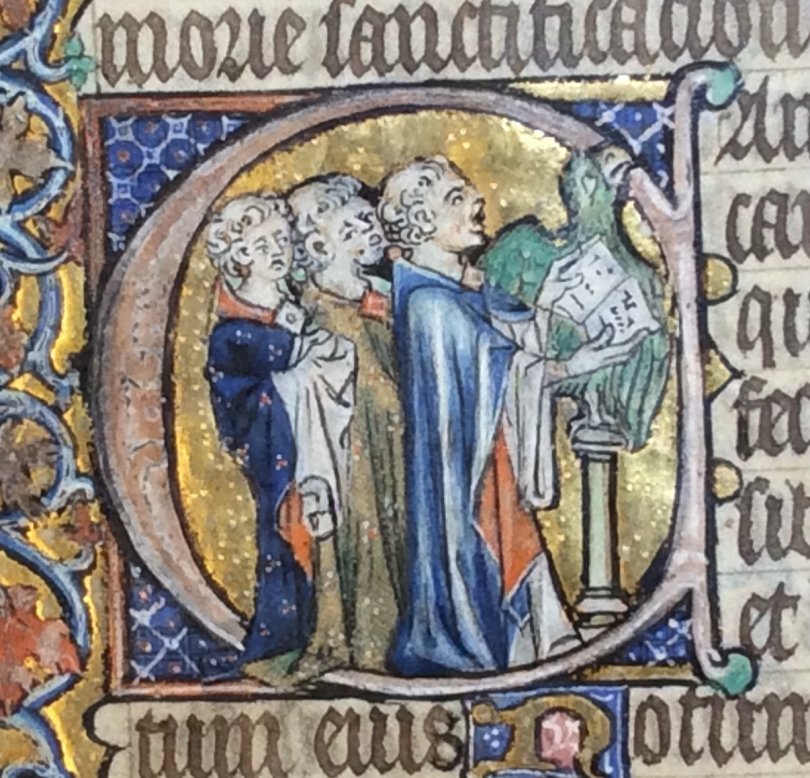 morie sanctificacion
CAn
can
qui
fec
sib
et
tum eius Notum